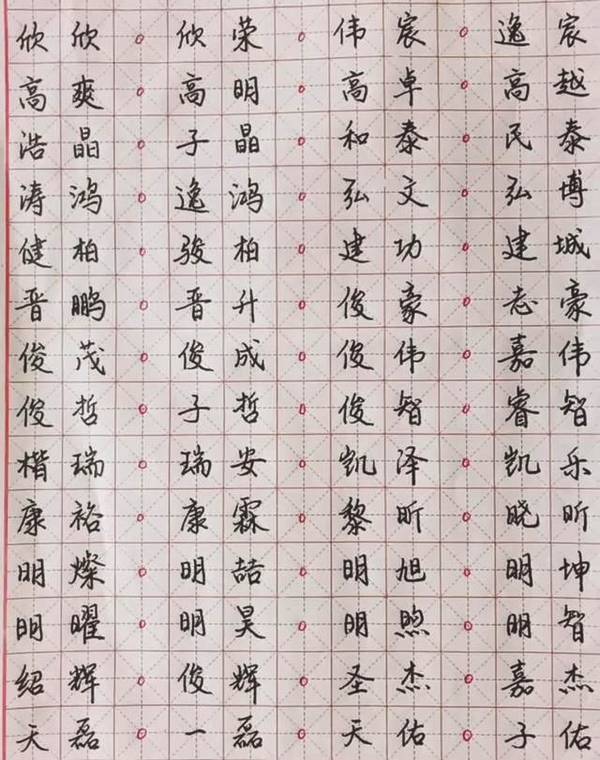 欣欣。欣荣。伟宸。逸宸
高爽。高明。高卓。高越
浩晶。子晶。和泰。民泰
涛鸿。逸鸿。弘文。弘博
健柏。骏柏。建功。建城
晋鹏。晋升。俊豪。志豪
俊茂。俊成。俊伟。嘉伟
俊哲。子哲。俊智。睿智
楷瑞。瑞安。凯泽。凯乐
康裕。康霖。黎昕。晓昕
明燦。明喆。明旭。明坤
明曜。明昊。明煦。明智
绍辉。俊辉。圣杰。嘉杰
天磊。一磊。天佑。子佑